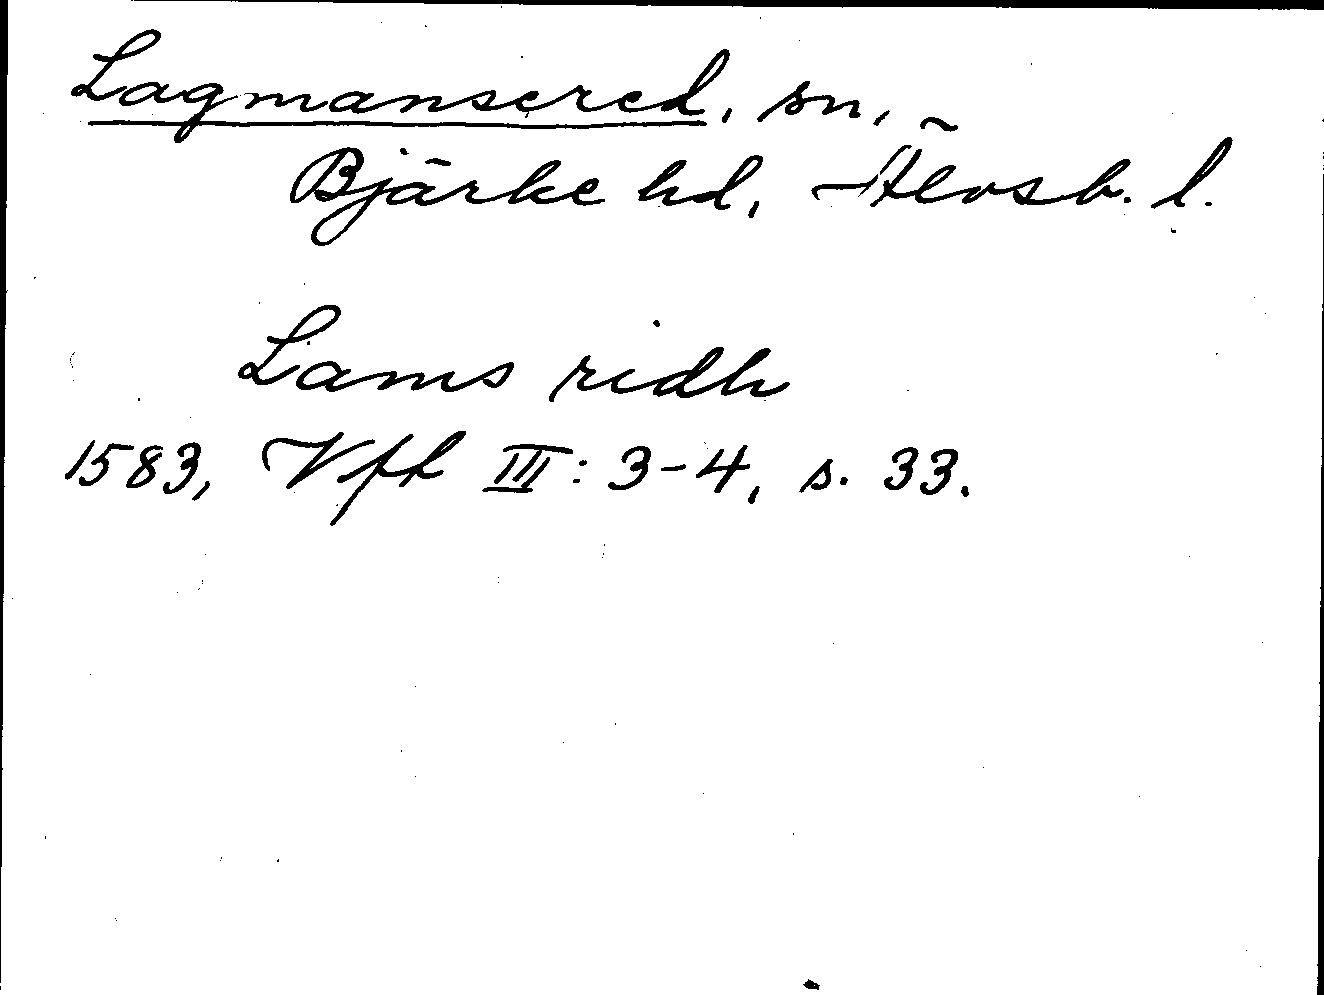 Lagmansered, sn,
Bjärke hd, Älvsb. l.
Lams ridh
1583, Vfl III: 3-4, s. 33.